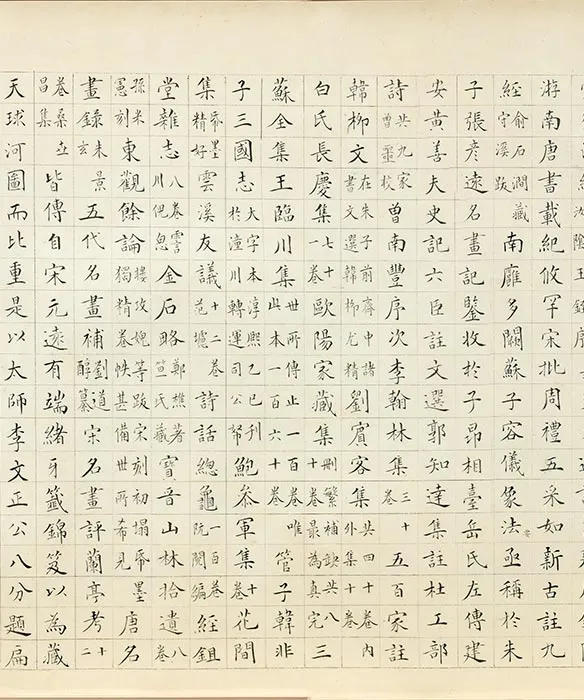 游南唐書載紀攸罕宋批周禮五采如新古註九
經俞石澗藏守溪跋南雍多闕蘇子容儀象法亟稱於朱
子張彥遠名畫記鑒收於子昂相臺岳氏左傳建
安黃善夫史記六臣註文選郭知達集註杜工部
詩共九家曾噩校曾南豐序次李翰林集三十五百家註
韓柳文在朱子前齋中諸書文選韓柳尤精劉賓客集共四十卷內外集十卷
白氏長慶集七十一卷歐陽家藏集刪繁補缺共八十卷最為真完三
蘇全集王臨川集世所傳止一百卷唯此本一百六十卷管子韓非
子三國志大字本淳熙乙巳刊於潼川轉運司公帑鮑參軍集十卷花間
集紙墨精好雲溪友議十二卷范攄詩話總龜一百卷阮閱編經鉏
堂雜志八卷霅川倪思金石略鄭樵著笪氏藏寶晉山林拾遺八卷
孫米憲刻東觀餘論樓攻媿等跋宋刻初搨紙墨獨精卷帙甚備世所希見唐名
畫錄朱景玄五代名畫補劉道醇纂宋名畫評蘭亭考十二
卷桑世昌集皆傳自宋元遠有端緒牙籤錦笈以為藏
天球河圖而比重是以太師李文正公八分題扁